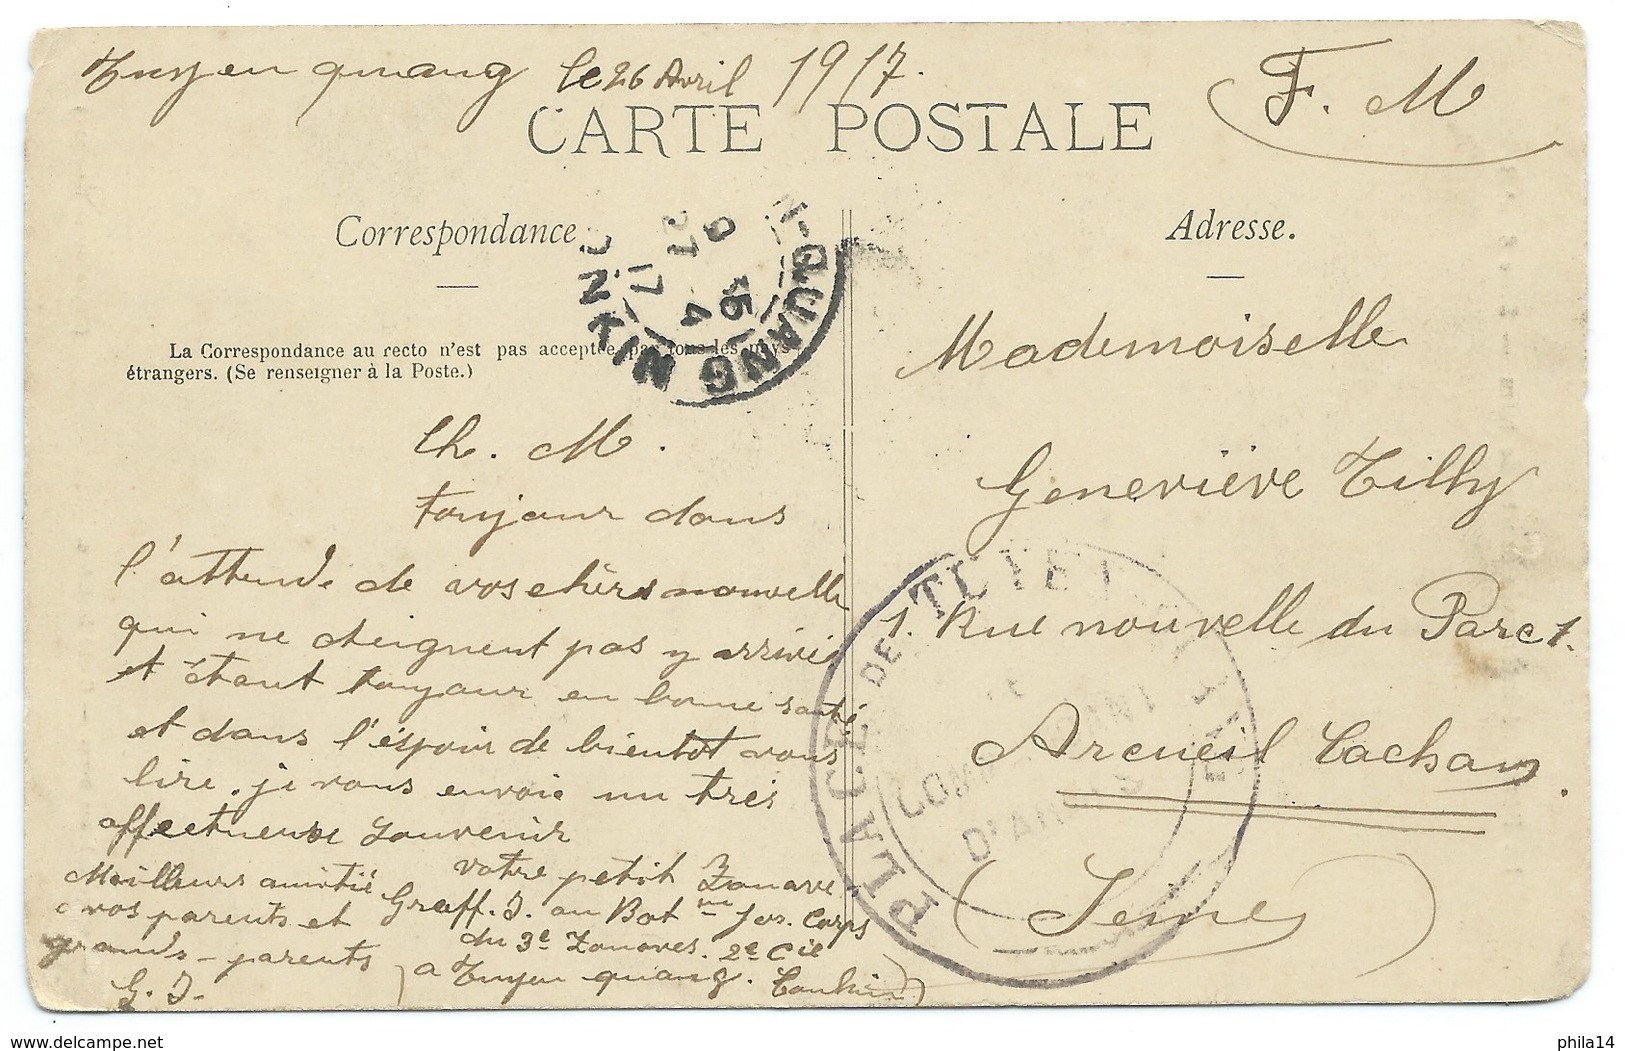 Tuyen quang le 26 Avril 1917.
F. M
CARTE POSTALE
Correspondance
Adresse.
N-QUANG
ONKIN
9 35
27 4
17
La Correspondance au recto n'est pas acceptée par tous les pays
étrangers. (Se renseigner à la Poste.)
Ch. M.
toujour dans
l'attende de vos chèrs nouvelle
qui ne deignent pas y arrivés
et étant toujour en bonne santé,
et dans l'éspoir de bientot vous
lire. je vous envoie un tres
affectueuse souvenir
votre petit Zouave
Graff. J. au Bat
Corps
du 3e Zouaves. 2e Cie
a Tuyen quang. Tonkin
Meilleurs amitié
a vos parents et
grands-parents
G. J.
Mademoiselle
Geneviève Tilly
1. Rue nouvelle du Parc 1.
Arcueil Cachan.
(Seine)
PLACE DE TUYEN
COMMANDANT
D'ARMES
www.delcampe.net
phila14